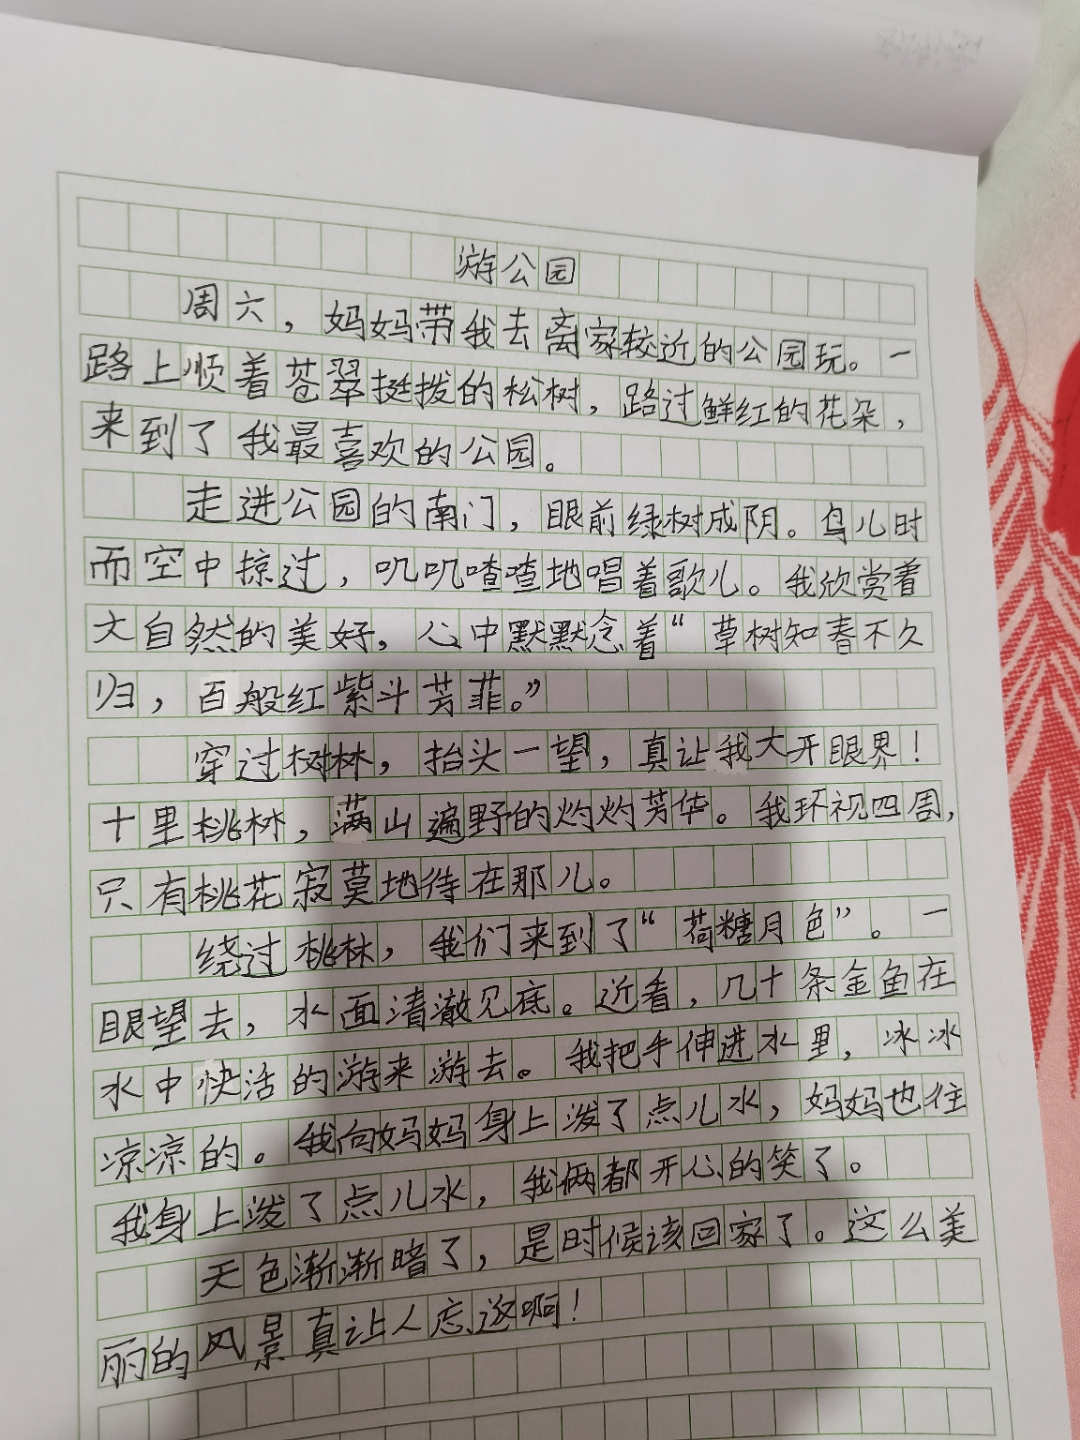 游公园
周六，妈妈带我去离家较近的公园玩。一
路上顺着苍翠挺拨的松树，路过鲜红的花朵，
来到了我最喜欢的公园。
走进公园的南门，眼前绿树成阴。鸟儿时
而空中掠过，叽叽喳喳地唱着歌儿。我欣赏着
大自然的美好，心中默默念着“草树知春不久
归，百般红紫斗芳菲。”
穿过树林，抬头一望，真让我大开眼界！
十里桃林，满山遍野的灼灼芳华。我环视四周，
只有桃花寂莫地待在那儿。
绕过桃林，我们来到了“荷糖月色”。一
眼望去，水面清澈见底。近看，几十条金鱼在
水中快活的游来游去。我把手伸进水里，冰冰
凉凉的。我向妈妈身上泼了点儿水，妈妈也往
我身上泼了点儿水，我俩都开心的笑了。
天色渐渐暗了，是时候该回家了。这么美
丽的风景真让人忘返啊！